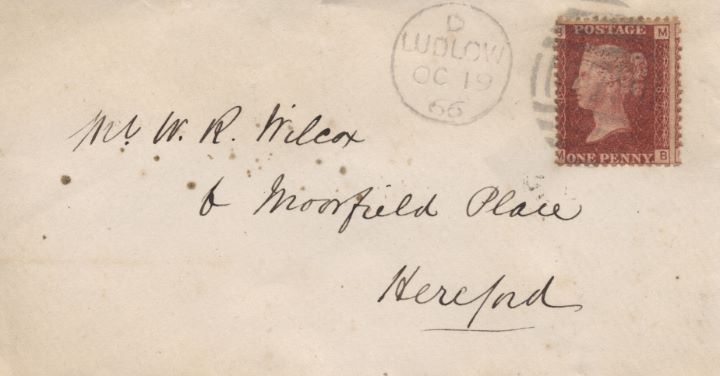 D
LUDLOW
OC 19
66
POSTAGE
M
ONE PENNY
M B
Mr. W. R. Wilcox
6 Moorfield Place
Hereford